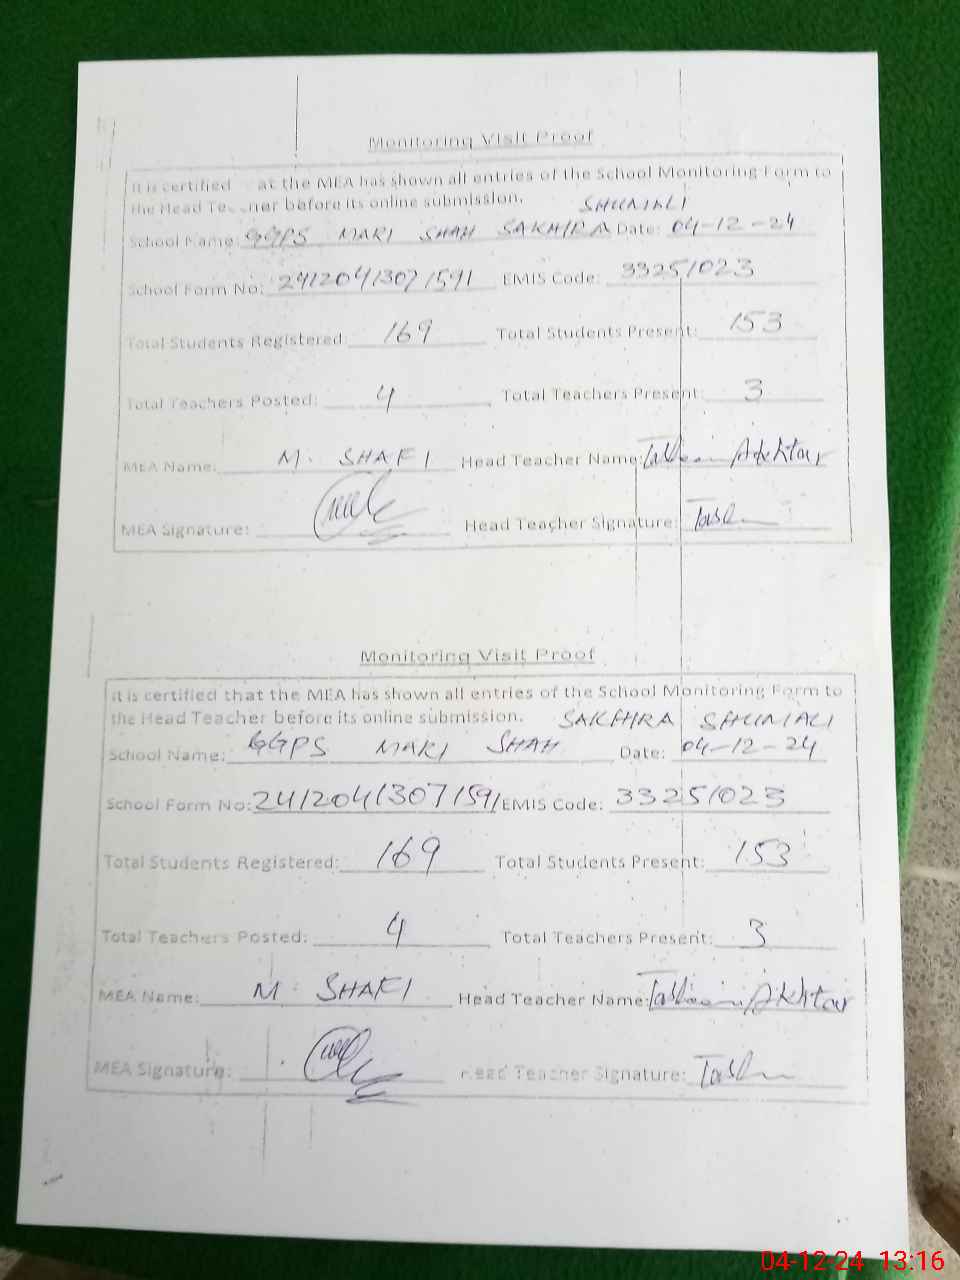 Monitoring Visit Proof
It is certified at the MEA has shown all entries of the School Monitoring Form to
the Head Teacher before its online submission. SHUMALI
School Name: GGPS MARI SHAH SAKHIRA Date: 04-12-24
School Form No: 24120413071591 EMIS Code: 33251023
Total Students Registered: 169 Total Students Present: 153
Total Teachers Posted: 4 Total Teachers Present: 3
MEA Name: M. SHAFI Head Teacher Name: Akhtar
MEA Signature: Head Teacher Signature:
Monitoring Visit Proof
It is certified that the MEA has shown all entries of the School Monitoring Form to
the Head Teacher before its online submission. SAKHIRA SHUMALI
School Name: GGPS MARI SHAH Date: 04-12-24
School Form No: 24120413071591 EMIS Code: 33251023
Total Students Registered: 169 Total Students Present: 153
Total Teachers Posted: 4 Total Teachers Present: 3
MEA Name: M. SHAFI Head Teacher Name: Akhtar
MEA Signature: Head Teacher Signature:
04-12-24 13:16